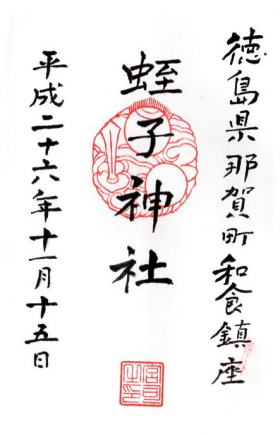 徳島県那賀町和食鎮座
蛭子神社
平成二十六年十一月十五日